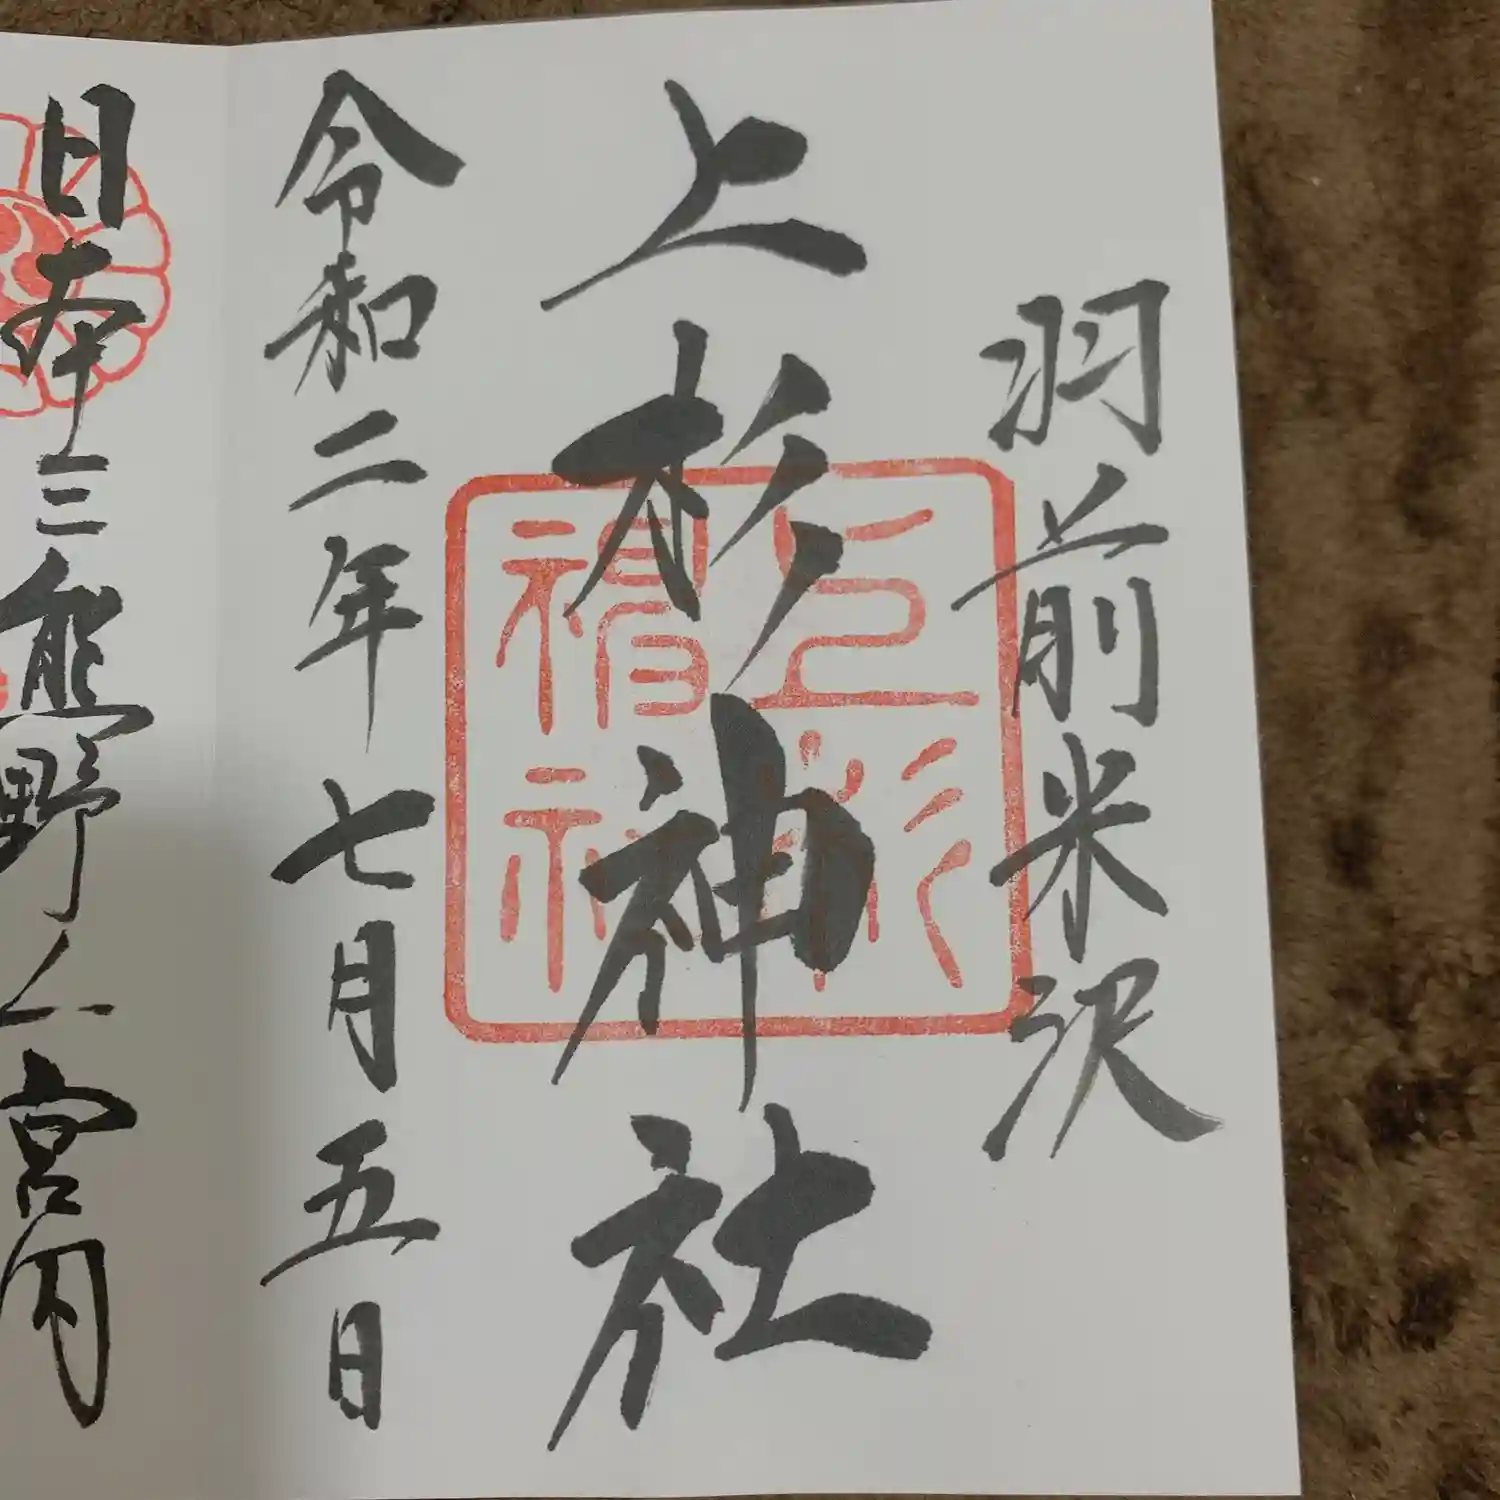 羽前米沢
上杉神社
上杉神社
令和二年七月五日
日本三熊野
宮内